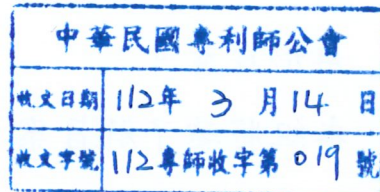 中華民國專利師公會
收文日期 112年 3 月 14 日
收文字號 112專師收字第 019 號